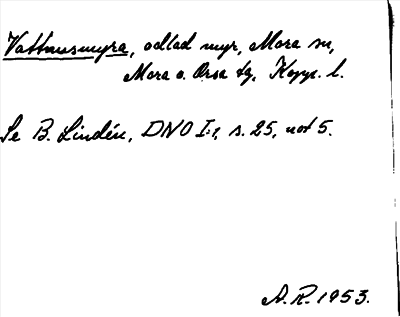 Vattmusmyra, odlad myr, Mora sn,
Mora o. Orsa tg, Kopp. l.
Se B. Lindén, DNO I:1, s. 25, not 5.
A.R. 1953.